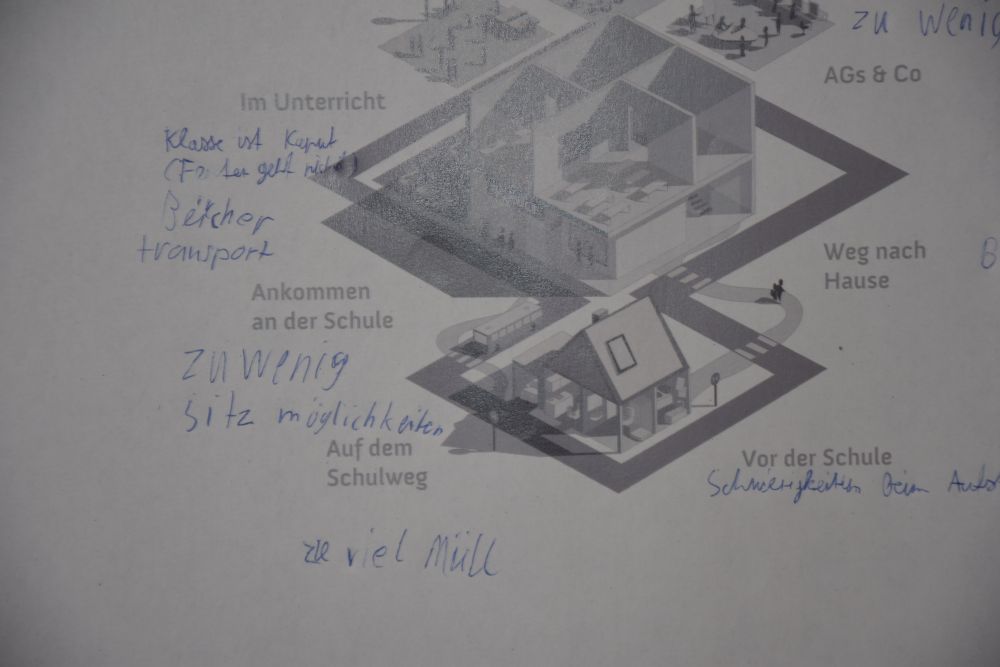 zu wenig
AGs & Co
Im Unterricht
Klasse ist Kaput
geht nicht)
Beicher
transport
Weg nach
Hause
Ankommen
an der Schule
zu wenig
sitz möglichkeiten
Auf dem
Schulweg
Vor der Schule
Schwierigkeiten beim
zu viel Müll